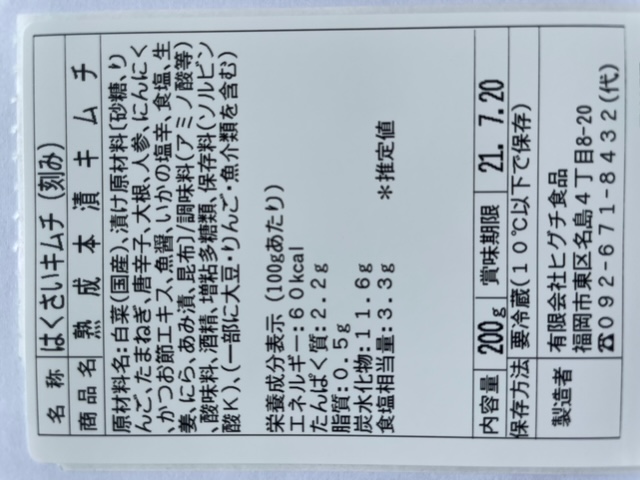 名称 はくさいキムチ(刻み)
商品名 熟成本漬キムチ
原材料名:白菜(国産)、漬け原材料〔砂糖、り
んご、たまねぎ、唐辛子、大根、人参、にんにく
、かつお節エキス、魚醤、いかの塩辛、食塩、生
姜、にら、あみ漬、昆布〕/調味料(アミノ酸等)
、酸味料、酒精、増粘多糖類、保存料(ソルビン
酸K)、(一部に大豆・りんご・魚介類を含む)
栄養成分表示(100gあたり)
エネルギー:60kcal
たんぱく質:2.2g
脂質:0.5g
炭水化物:11.6g
食塩相当量:3.3g *推定値
内容量 200g 賞味期限 21. 7.20
保存方法 要冷蔵(10℃以下で保存)
製造者 有限会社ヒグチ食品
福岡市東区名島4丁目8-20
☎092-671-8432(代)